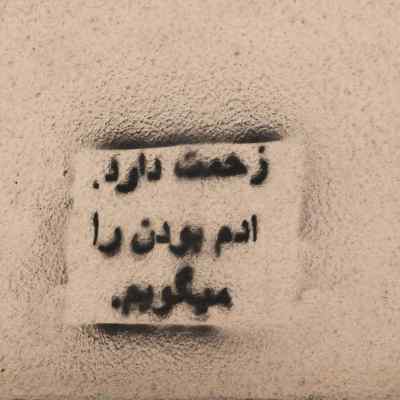 زحمت دارد.
ادم بودن را
میگویم.